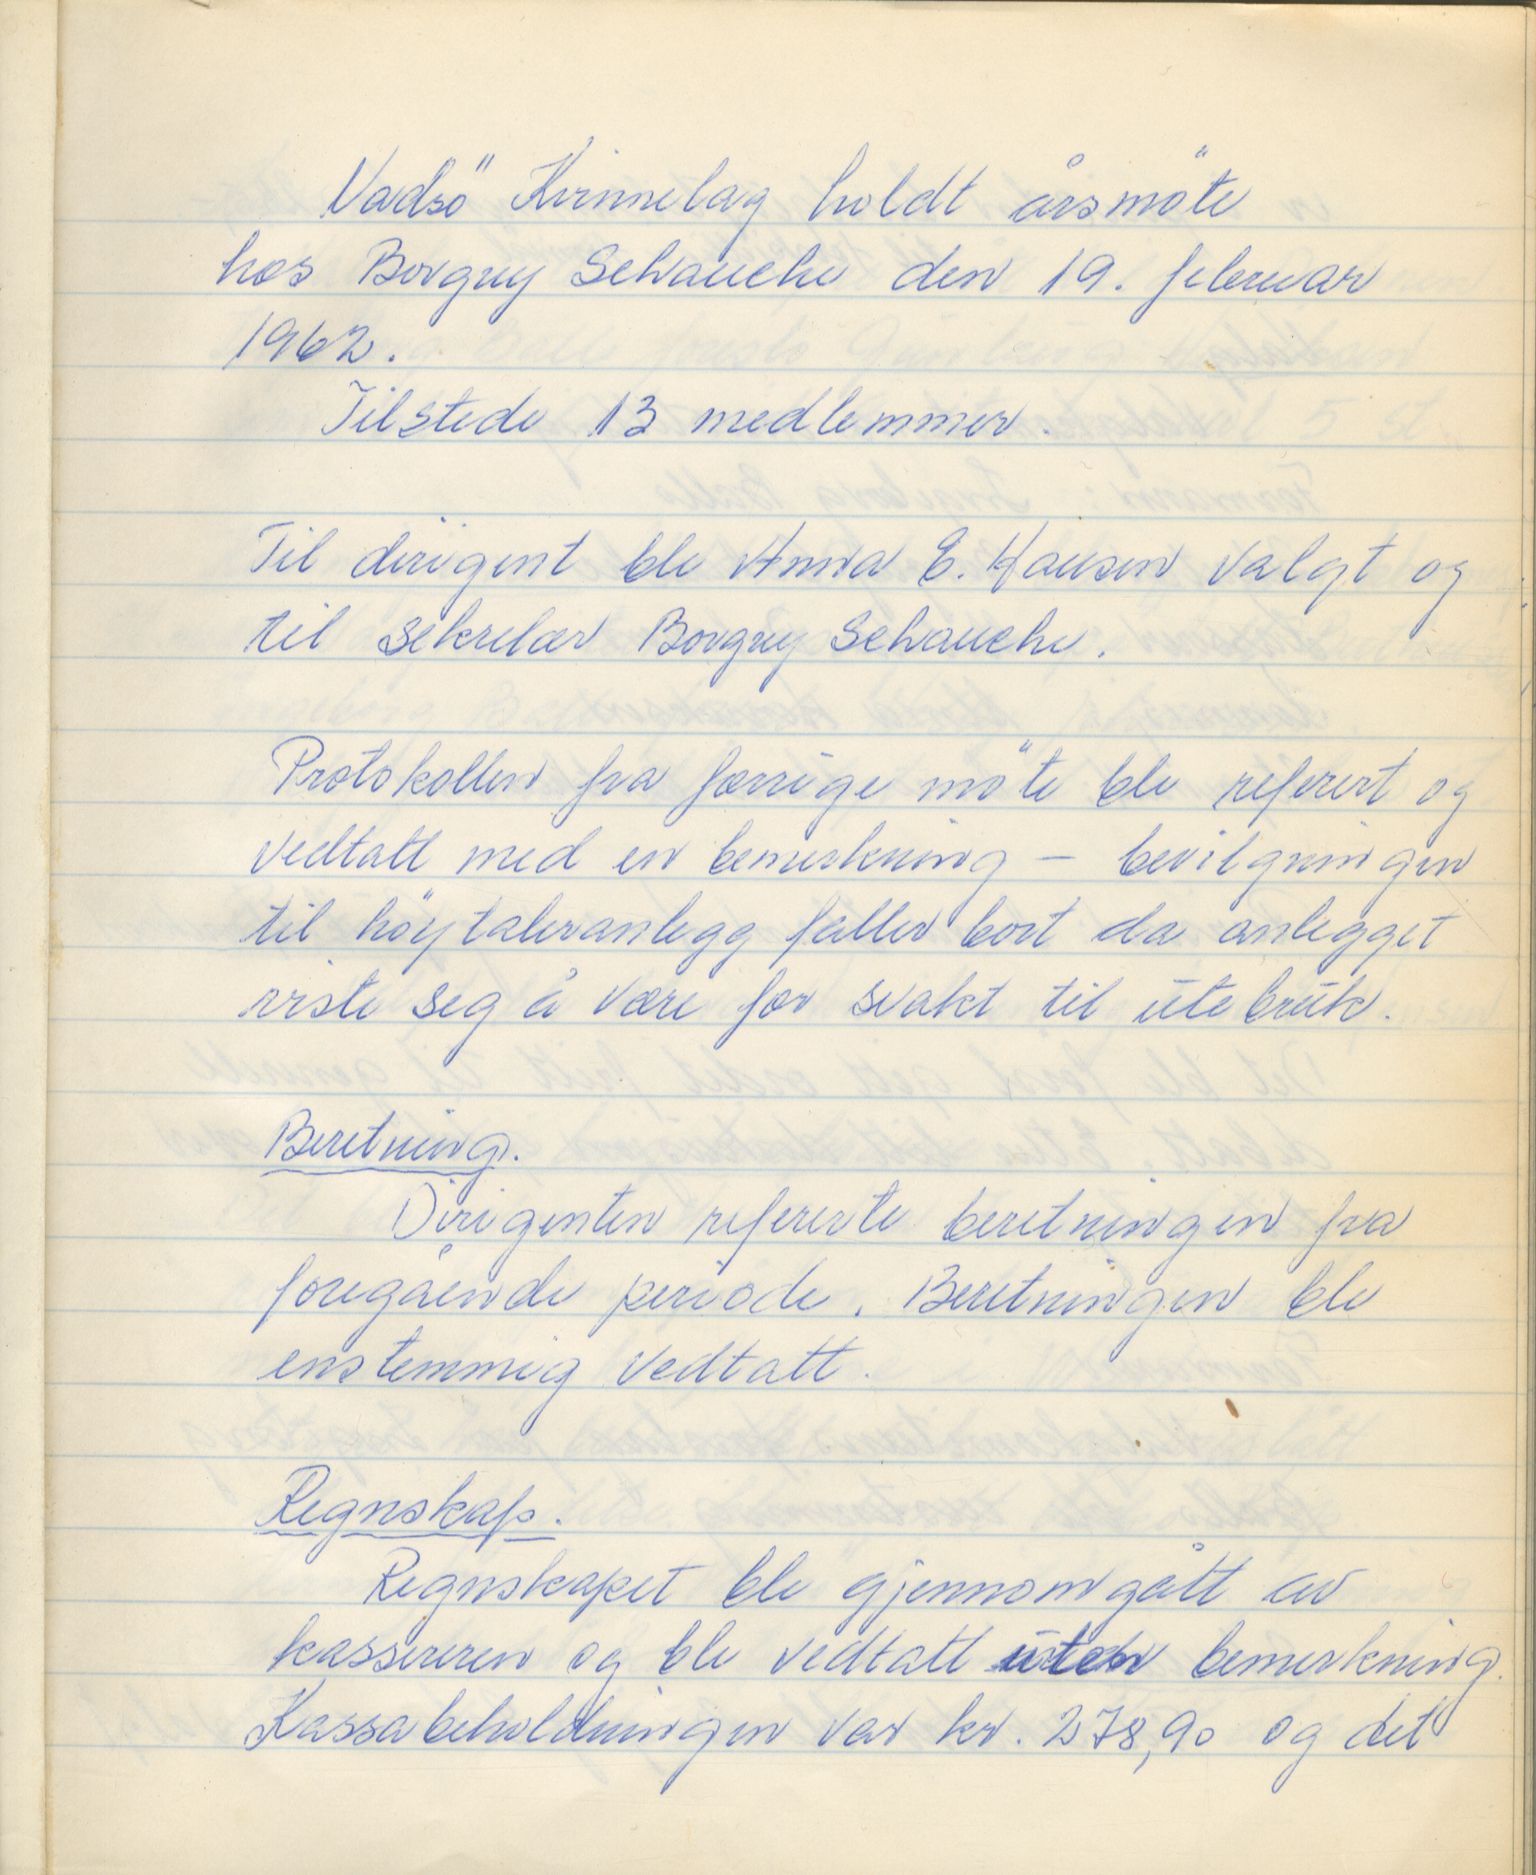 Vadsö Kvinnelag holdt årsmöte
hos Borgny Schanche den 19. februar
1962.
Tilstede 13 medlemmer.
Til dirigent ble Anna E. Hansen valgt og
til sekretær Borgny Schanche.
Protokollen fra forrige möte ble referert og
vedtatt med en bemerkning – bevilgningen
til höytaleranlegg faller bort da anlegget
viste seg å være for svakt til utebruk.
Beretning.
Dirigenten refererte beretningen fra
foregående periode. Beretningen ble
enstemmig vedtatt.
Regnskap.
Regnskapet ble gjennomgått av
kassereren og ble vedtatt uten bemerkning.
Kassabeholdningen var kr. 278,90 og det